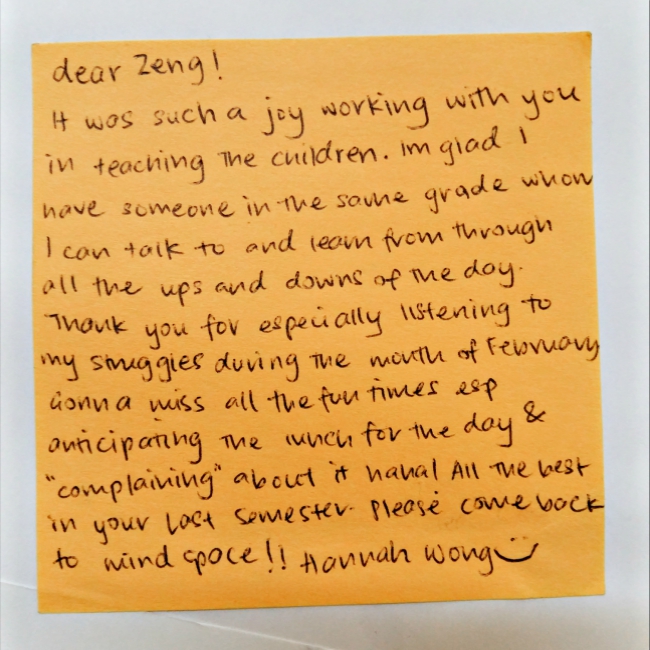 dear Zeng!
It was such a joy working with you
in teaching the children. Im glad I
have someone in the same grade whom
I can talk to and learn from through
all the ups and downs of the day.
Thank you for especially listening to
my struggles during the month of February
Gonna miss all the fun times esp
anticipating the lunch for the day &
"complaining" about it haha! All the best
in your last semester. Please come back
to mind space!! Hannah Wong